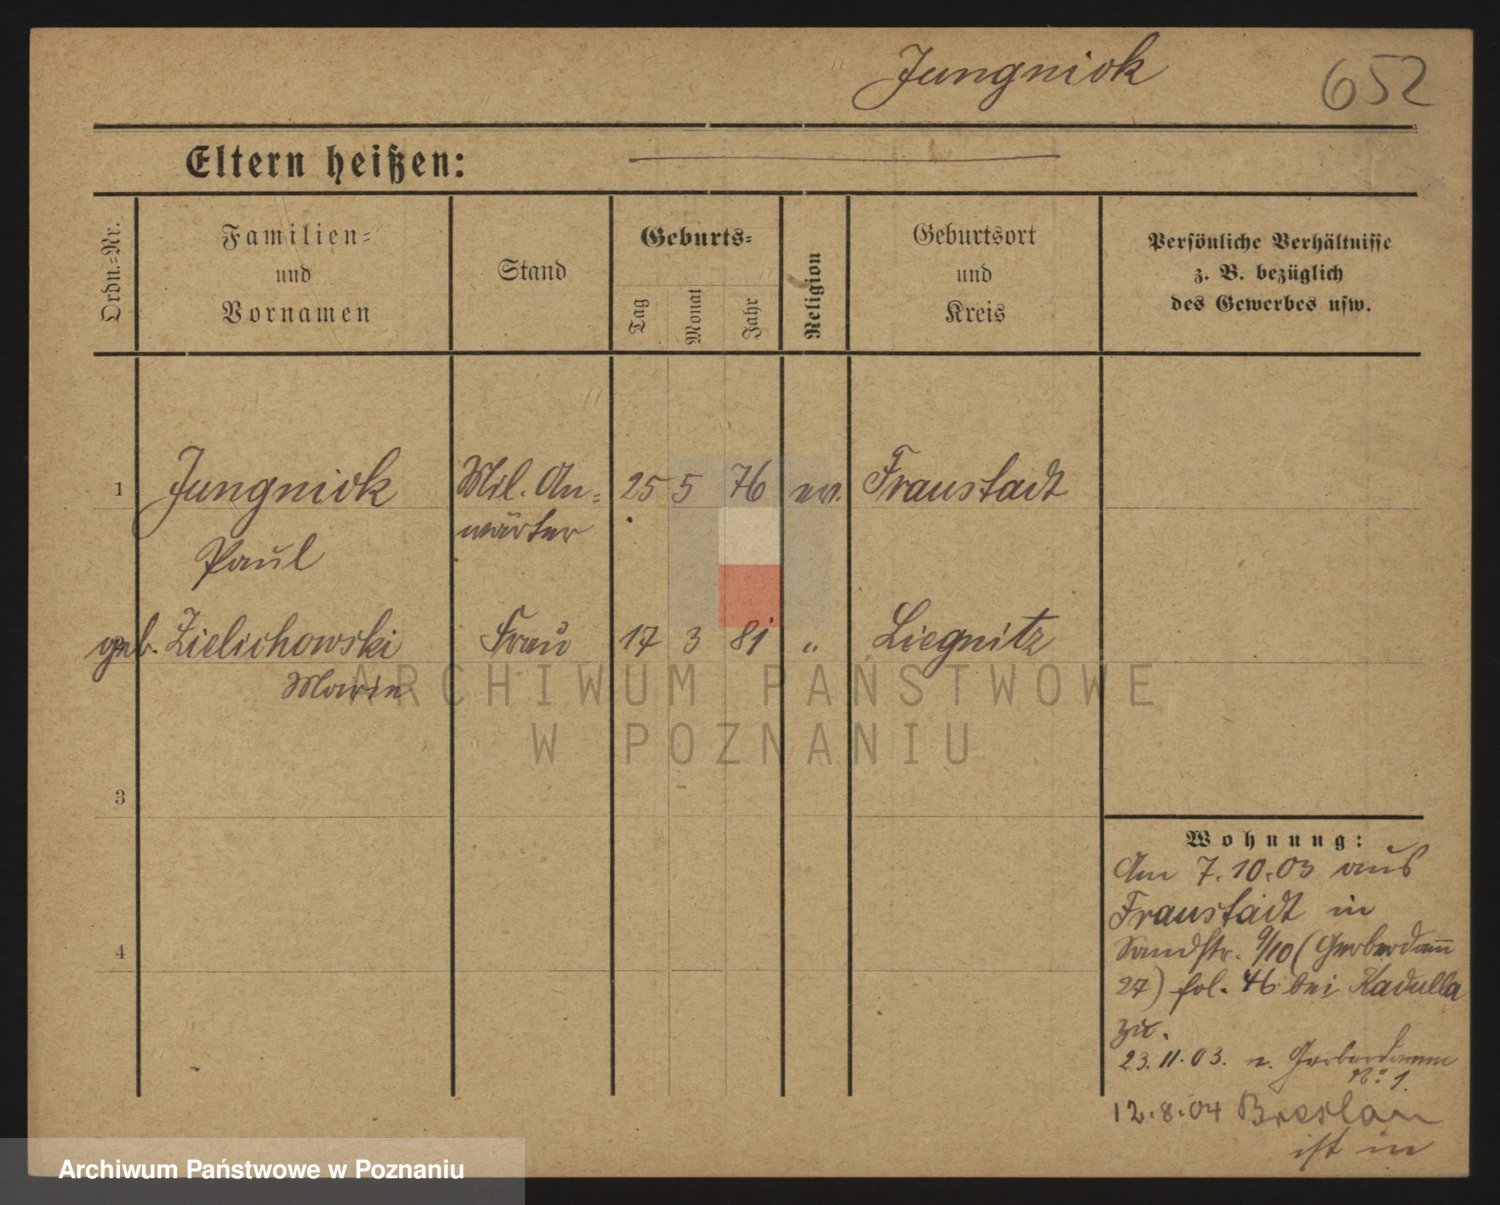 Jungniok 652
Eltern heißen:
Ordn.-Nr.
Familien-
und
Vornamen
Stand
Geburts-
Tag
Monat
Jahr
Religion
Geburtsort
und
Kreis
Persönliche Verhältnisse
z. B. bezüglich
des Gewerbes usw.
1 Jungniok Mil. An- 25 5 76 ev. Fraustadt
wärter
Paul
2 geb. Zielichowski Frau 17 3 81 " Liegnitz
Marie
ARCHIWUM PAŃSTWOWE
W POZNANIU
3
4
Wohnung:
Am 7.10.03 aus
Fraustadt in
Sandstr. 9/10 (Gerberdam̅
27) fol. 46 bei Kadulla
zu.
23.11.03. n. Gerberdamm
No 1.
12.8.04 Breslau
ist in
Archiwum Państwowe w Poznaniu